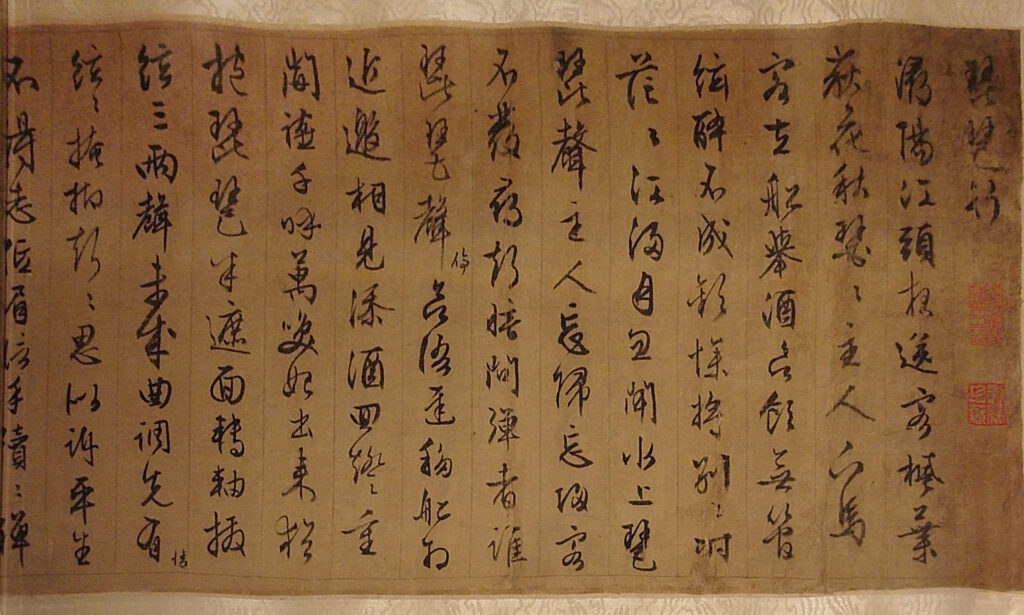 琵琶行
潯陽江頭夜送客楓葉
荻花秋瑟〻主人下馬
客在船舉酒欲飲無管
絃醉不成歡慘將別〻時
茫〻江浸月忽聞水上琵
琶聲主人忘歸忘返客
不發尋聲暗問彈者誰
琵琶聲停欲語遲移船相
近邀相見添酒回燈重
開讌千呼萬喚始出來猶
抱琵琶半遮面轉軸撥
絃三兩聲未成曲調先有情
絃〻掩抑聲〻思似訴平生
不得志低眉信手續〻彈